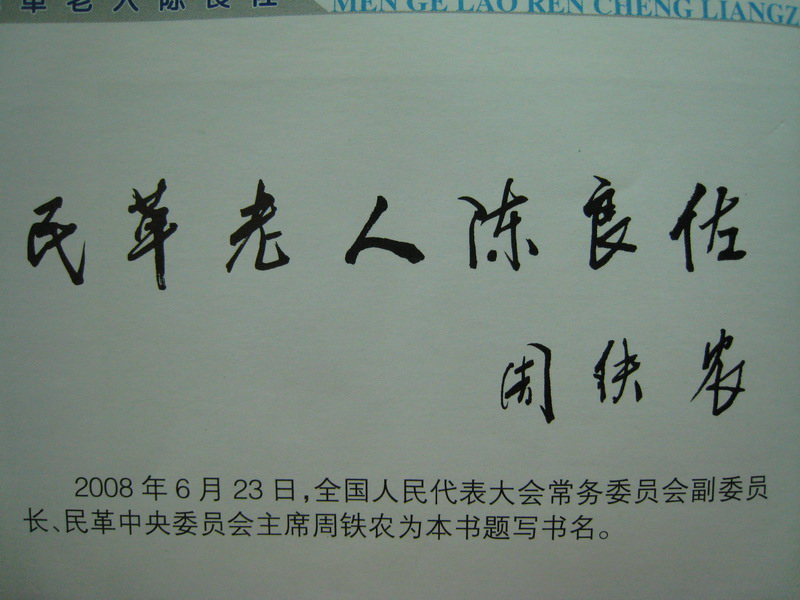 革老人陈良佐
MEN GE LAO REN CHENG LIANGZ
民革老人陈良佐
周铁农
2008年6月23日,全国人民代表大会常务委员会副委员
长、民革中央委员会主席周铁农为本书题写书名。